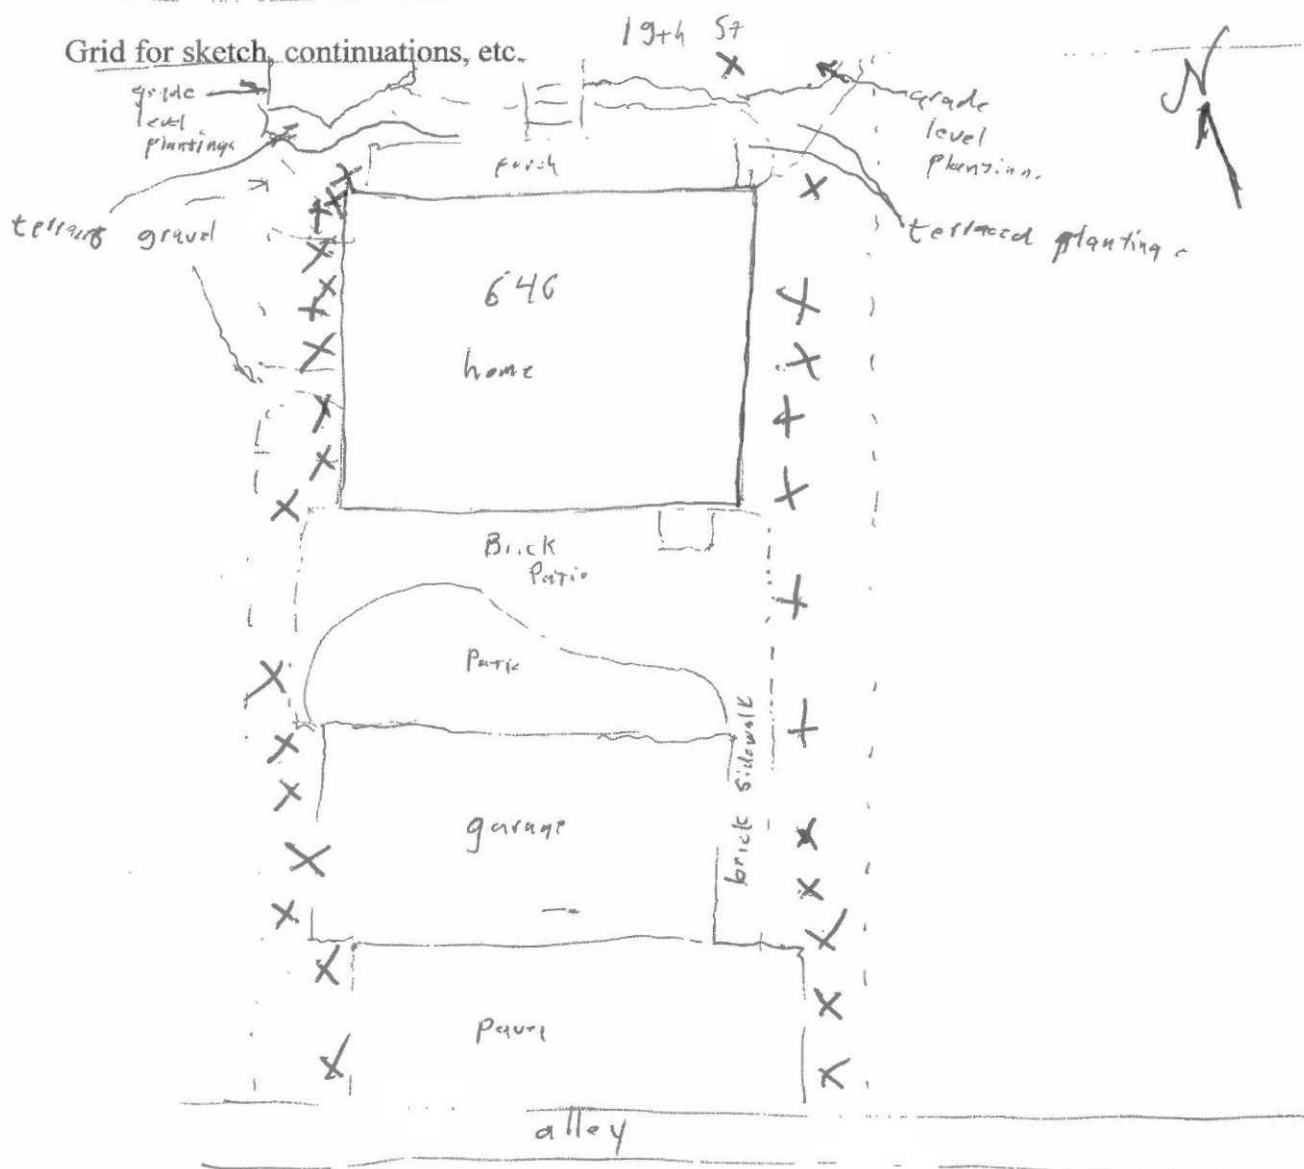 Grid for sketch, continuations, etc.
19th St
N
grade
level
plantings
grade
level
porch
gravel
terraced planting
640
home
Brick
Patio
Patio
brick sidewalk
garage
paved
alley